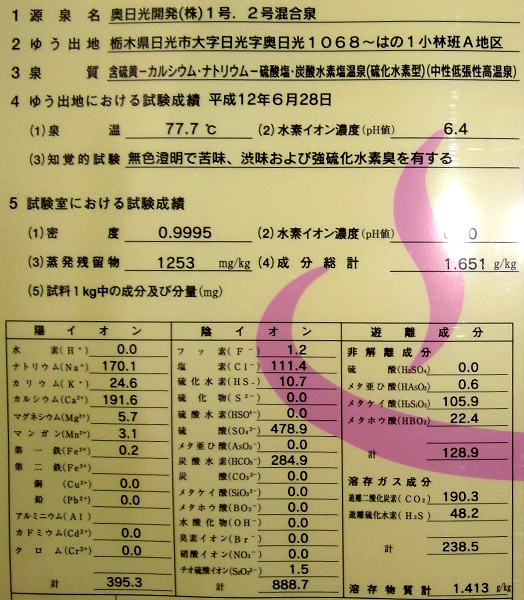 1 源泉名 奥日光開発(株)1号.2号混合泉
2 ゆう出地 栃木県日光市大字日光字奥日光1068～はの1小林班A地区
3 泉質 含硫黄－カルシウム・ナトリウム－硫酸塩・炭酸水素塩温泉(硫化水素型)(中性低張性高温泉)
4 ゆう出地における試験成績 平成12年6月28日
(1)泉温 77.7 ℃ (2)水素イオン濃度(pH値) 6.4
(3)知覚的試験 無色澄明で苦味、渋味および強硫化水素臭を有する
5 試験室における試験成績
(1)密度 0.9995 (2)水素イオン濃度(pH値)
(3)蒸発残留物 1253 mg/kg (4)成分総計 1.651 g/kg
(5)試料1kg中の成分及び分量(mg)
陽イオン
水素(H⁺) 0.0
ナトリウム(Na⁺) 170.1
カリウム(K⁺) 24.6
カルシウム(Ca²⁺) 191.6
マグネシウム(Mg²⁺) 5.7
マンガン(Mn²⁺) 3.1
第一鉄(Fe²⁺) 0.2
第二鉄(Fe³⁺)
銅(Cu²⁺) 0.0
鉛(Pb²⁺) 0.0
アルミニウム(Al)
カドミウム(Cd²⁺) 0.0
クロム(Cr³⁺) 0.0
計 395.3
陰イオン
フッ素(F⁻) 1.2
塩素(Cl⁻) 111.4
硫化水素(HS⁻) 10.7
硫化物(S²⁻) 0.0
硫酸水素(HSO⁴⁻) 0.0
硫酸(SO₄²⁻) 478.9
メタ亜ひ酸(AsO₂⁻) 0.0
炭酸水素(HCO₃⁻) 284.9
炭酸(CO₃²⁻) 0.0
メタケイ酸(SiO₃²⁻) 0.0
メタホウ酸(BO₂⁻) 0.0
水酸化物(OH⁻) 0.0
臭素イオン(Br⁻) 0.0
硝酸イオン(NO₃⁻) 0.0
チオ硫酸イオン(S₂O₃²⁻) 1.5
計 888.7
遊離成分
非解離成分
硫酸(H₂SO₄) 0.0
メタ亜ひ酸(HAsO₂) 0.6
メタケイ酸(H₂SiO₃) 105.9
メタホウ酸(HBO₂) 22.4
計 128.9
溶存ガス成分
遊離二酸化炭素(CO₂) 190.3
遊離硫化水素(H₂S) 48.2
計 238.5
溶存物質計 1.413 g/kg